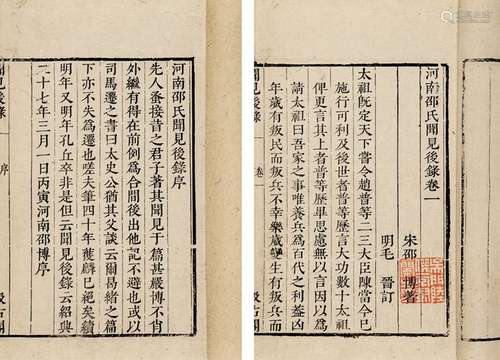 聞見後錄
序
汲古閣
河南邵氏聞見後錄序
先人蚤接昔之君子著其聞見于篇甚嚴博不肖
外繼有得在前例爲合間後出他記不避也或以
司馬遷之書曰太史公猶其父談云爾易緒之篇
下亦不失爲遷也嗟夫筆四十年獲麟已絕矣續
明年又明年孔丘卒非是但云聞見後錄云紹興
二十七年三月一日丙寅河南邵博序
聞見後錄
卷一
汲古閣
河南邵氏聞見後錄卷一
宋邵 博著
明毛 晉訂
太祖既定天下嘗令趙普等二三大臣陳當今已
施行可利及後世者普等歷言大功數十太祖
俾更言其上者普等歷畢思慮無以言因以爲
請太祖曰吾家之事唯養兵爲百代之利蓋凶
年歲有叛民而叛兵不幸樂歲變生有叛兵而